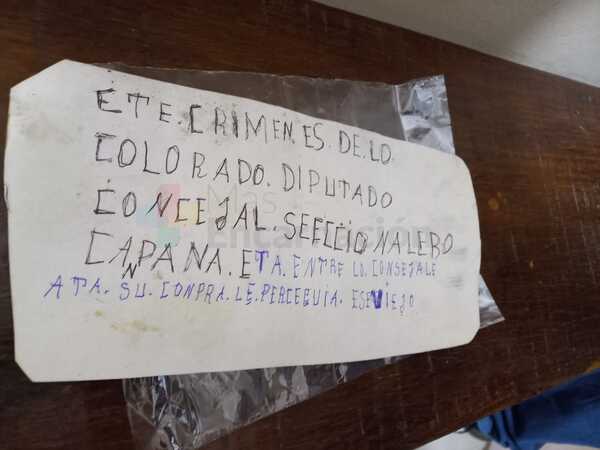 ETE.CRIMEN.ES.DE.LO.
COLORADO.DIPUTADO
CONCEJAL.SECCCIONALERO
CANPANA.ETA.ENTRE LO.CONSEJALE
ATA.SU.CONPRA.LE.PERCEGUIA.ESE VIEJO
Más
Encarnación